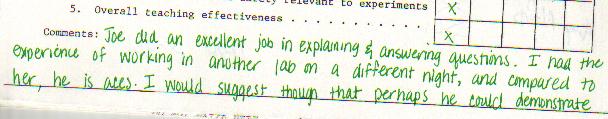 relevant to experiments X
5. Overall teaching effectiveness . . . . . . . . . . . . X
Comments: Joe did an excellent job in explaining & answering questions. I had the
experience of working in another lab on a different night, and compared to
her, he is aces. I would suggest though that perhaps he could demonstrate